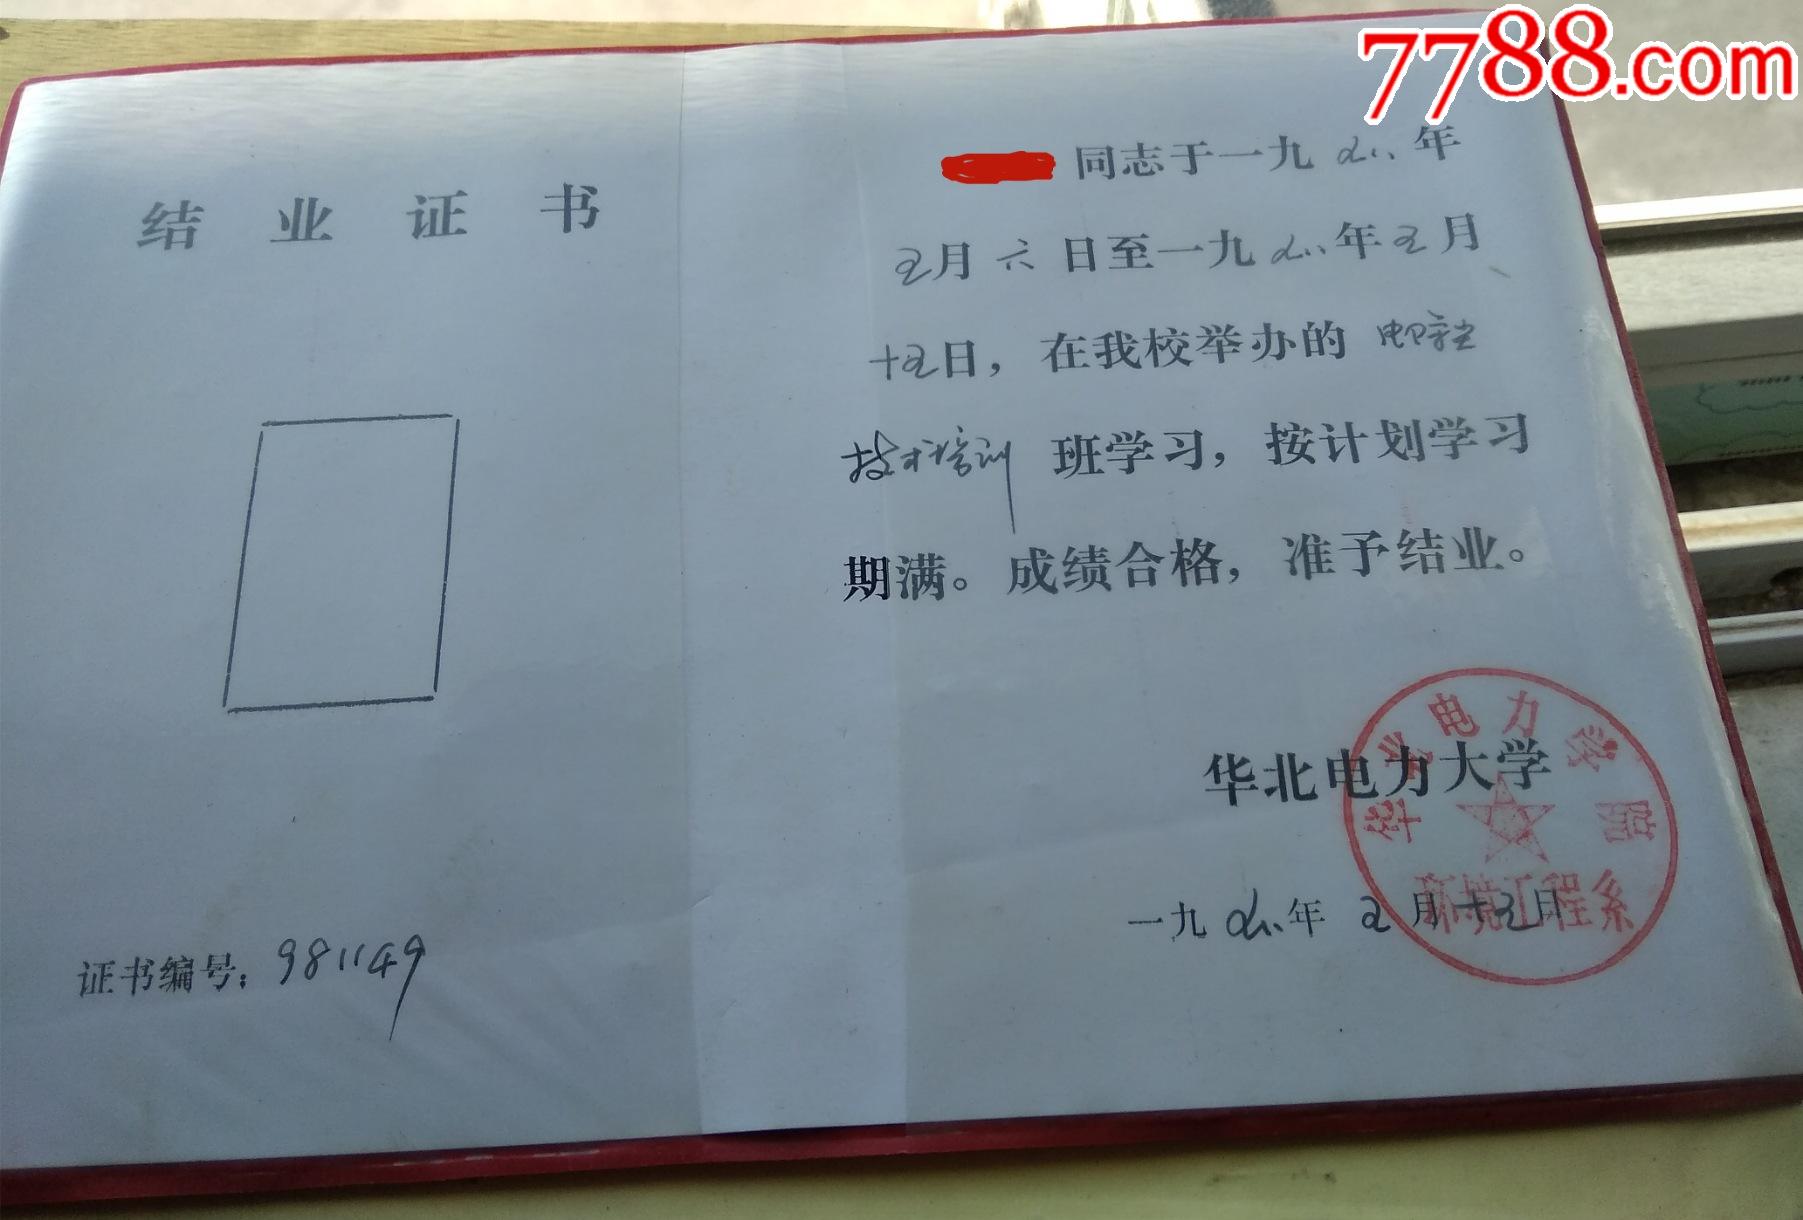 7788.com
结业证书
证书编号：981149
同志于一九九八年
五月六日至一九九八年五月
十五日，在我校举办的电除尘
技术培训班学习，按计划学习
期满。成绩合格，准予结业。
华北电力大学
一九九八年五月十五日
华北电力学院
环境工程系